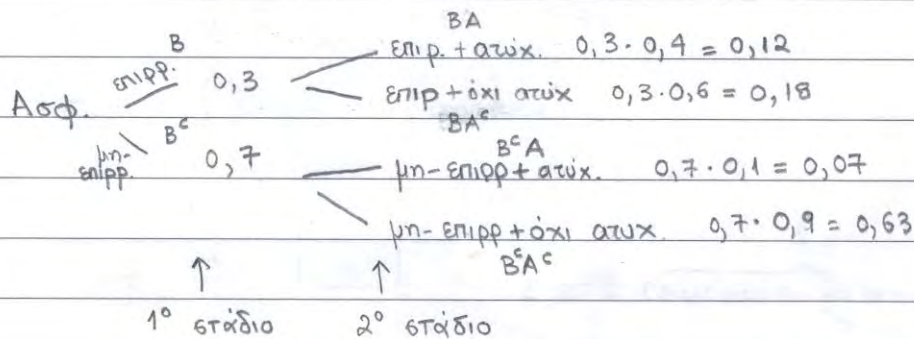 BA
B επιρ. + ατύχ. 0,3 · 0,4 = 0,12
επιρρ. 0,3
Ασφ. επιρ + όχι ατύχ 0,3 · 0,6 = 0,18
BAᶜ
Bᶜ BᶜA
μη-επιρρ. 0,7 μη-επιρρ + ατύχ. 0,7 · 0,1 = 0,07
μη-επιρρ + όχι ατυχ. 0,7 · 0,9 = 0,63
BᶜAᶜ
1° στάδιο 2° στάδιο